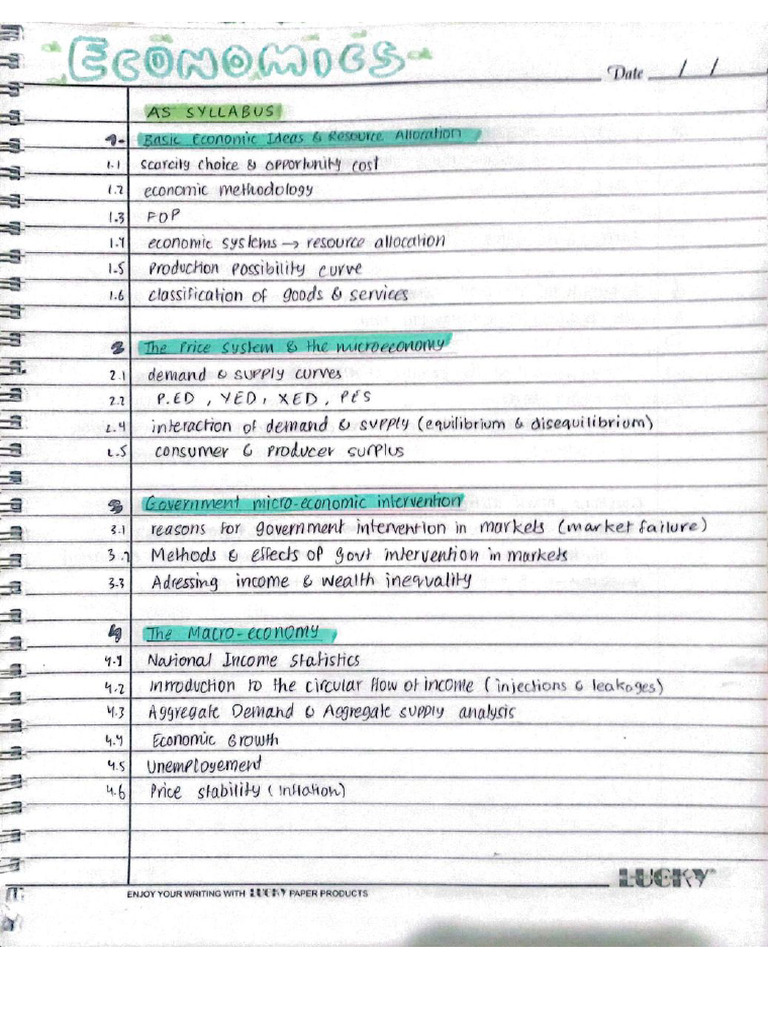 ECONOMICS
Date / /
AS SYLLABUS
1- Basic Economic Ideas & Resource Allocation
1.1 scarcity choice & opportunity cost
1.2 economic methodology
1.3 FOP
1.4 economic systems → resource allocation
1.5 Production possibility curve
1.6 classification of goods & services
2 The Price System & the microeconomy
2.1 demand & supply curves
2.2 P.ED, YED, XED, PES
2.4 interaction of demand & supply (equilibrium & disequilibrium)
2.5 consumer & producer surplus
3 Government micro-economic intervention
3.1 reasons for government intervention in markets (market failure)
3.2 Methods & effects of govt intervention in markets
3.3 Adressing income & wealth inequality
4 The Macro-economy
4.1 National Income Statistics
4.2 Introduction to the circular flow of income (injections & leakages)
4.3 Aggregate Demand & Aggregate supply analysis
4.4 Economic Growth
4.5 Unemployement
4.6 Price stability (inflation)
LUCKY
ENJOY YOUR WRITING WITH LUCKY PAPER PRODUCTS